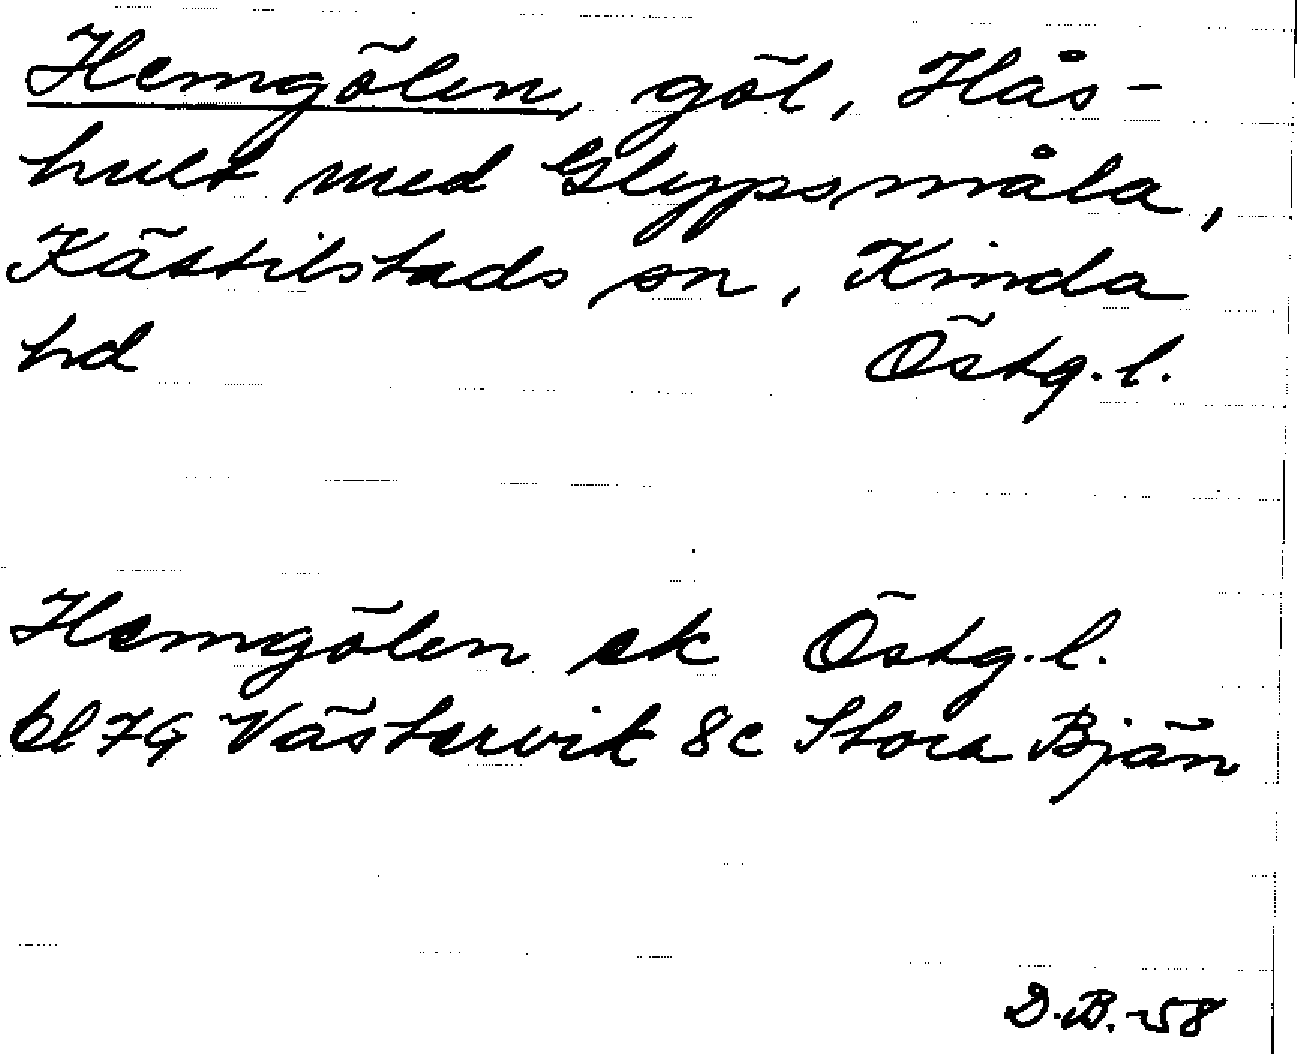 Hemgölen, göl, Hås-
hult med Glypsmåla,
Kättilstads sn, Kinda
hd Östg. l.
Hemgölen ek Östg. l.
bl 7G Västervik 8c Stora Bjän
D.B.-58